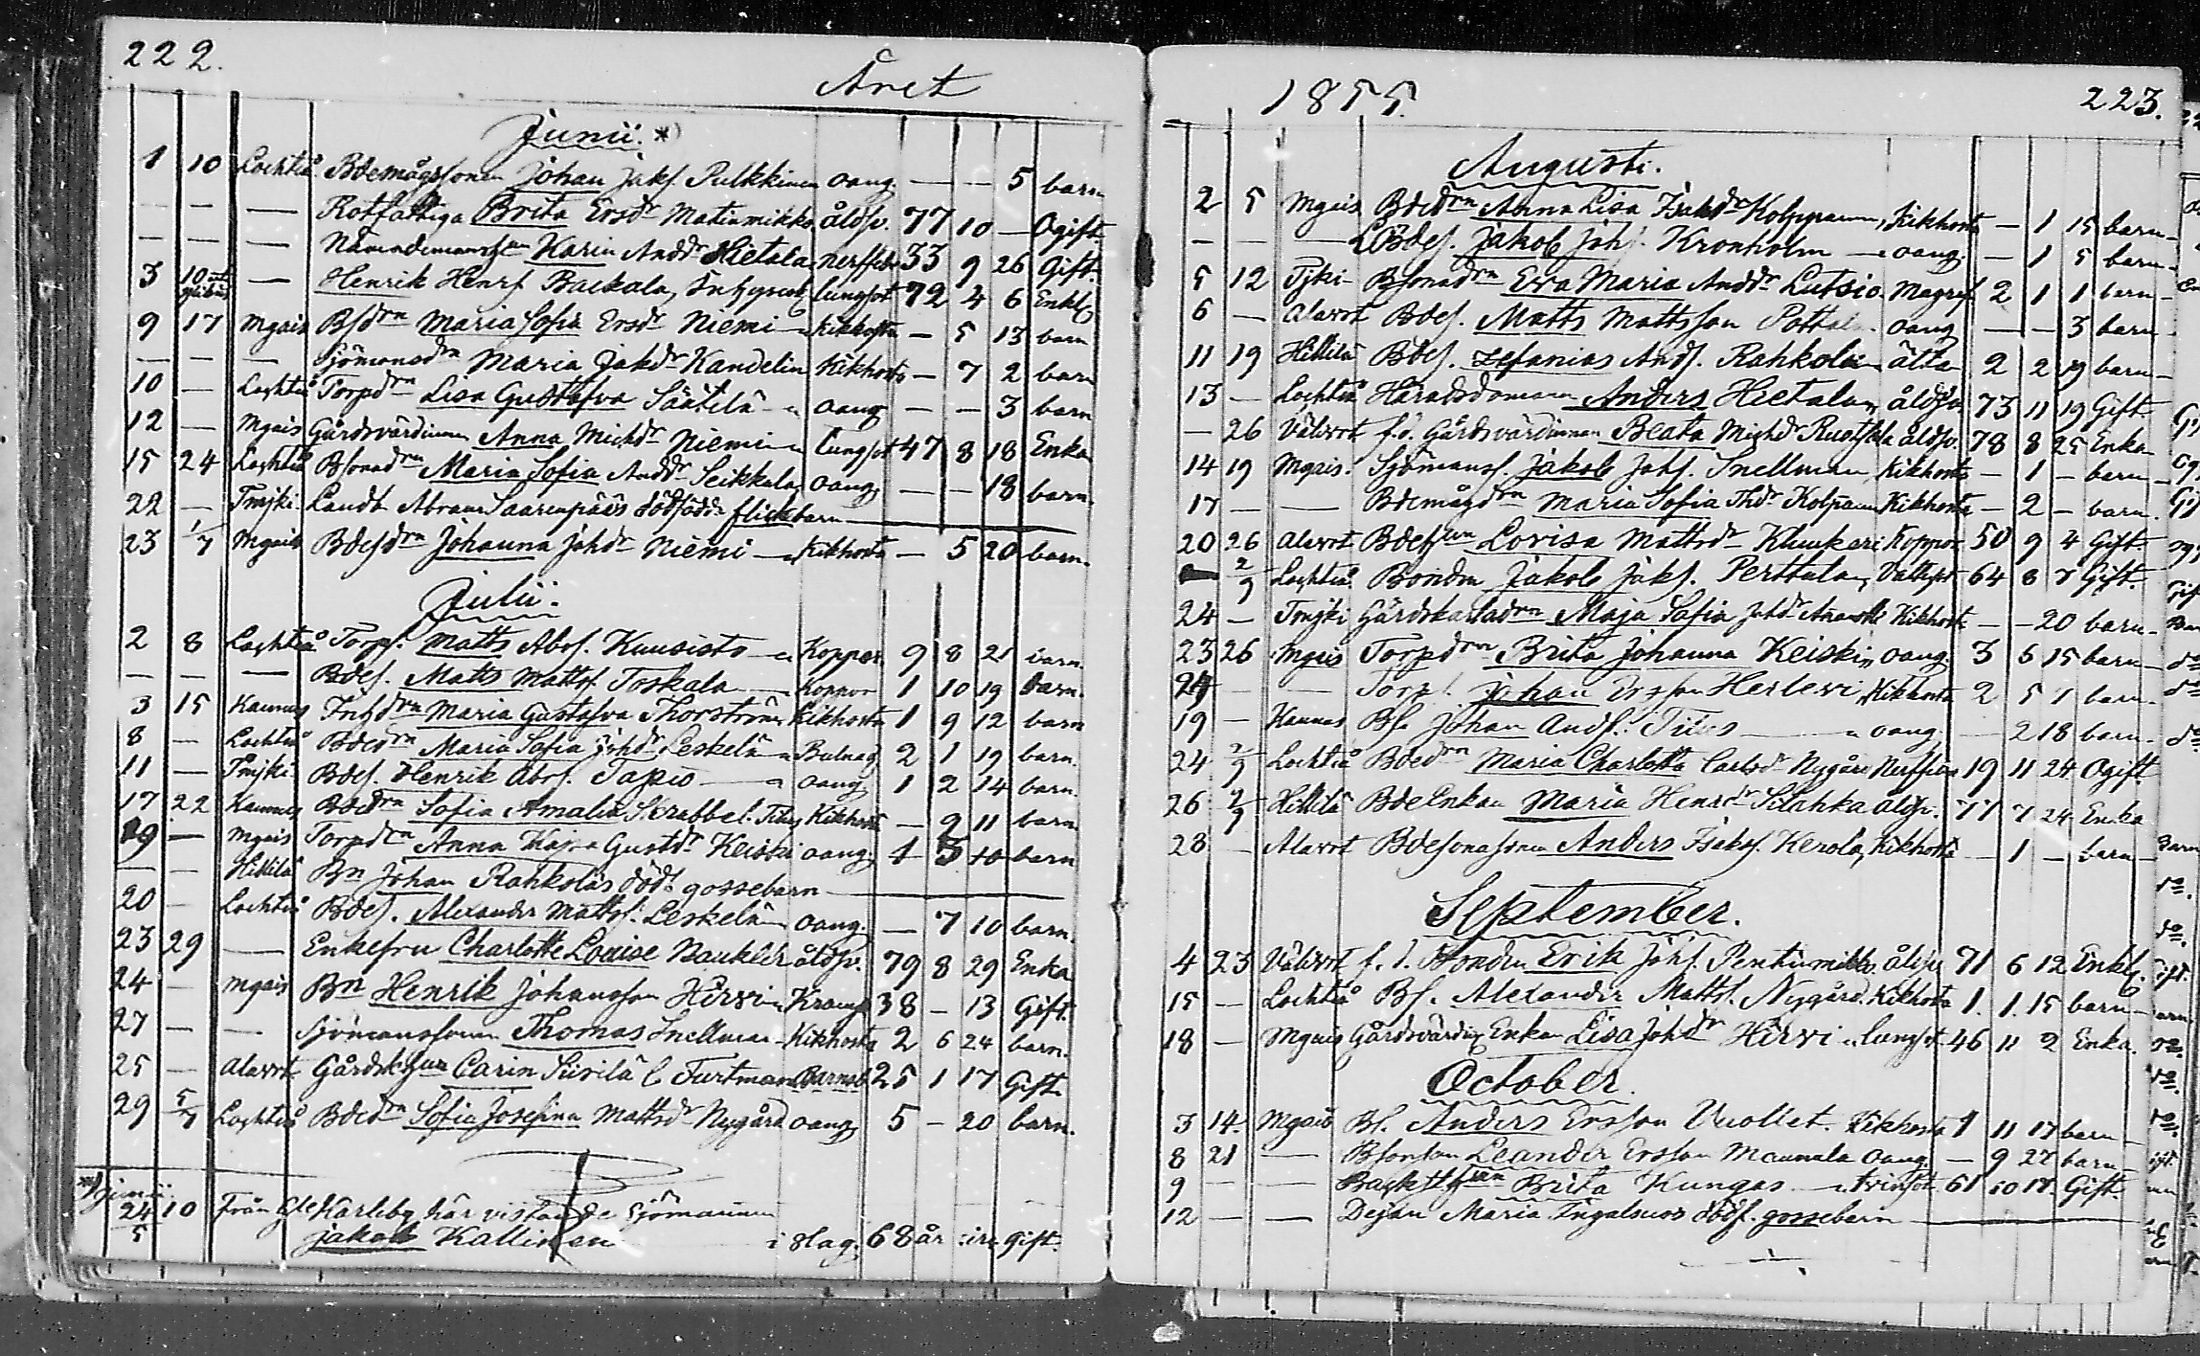 222.
Året
Junii. *)
1 10 Lochteå Bdemågssonen Johan Jaks. Pulkkinen oang. — — 5 barn
— — — Rotfattiga Brita Ersdr Matinmikko åldsv. 77 10 — Ogift.
— — — Nämndemans Karin Andr Hietala nerffeb 33 9 26 Gift.
3 10 — Henrik Henrs Backala, Inhyses lungsot 72 4 6 Enkl.
9 17 Mgais Bsdrn Maria Sofia Ersdr Niemi Kikhosta — 5 13 barn
— — — Sjömansdrn Maria Jakdr Kandelin Kikhosta — 7 2 barn
10 — Lochteå Torpdrn Lisa Gustafva Säätilä oang — — 3 barn
12 — Mgais Gårdsvärdinnan Anna Michdr Niemi Lungsot 47 8 18 Enka
15 24 Lochteå Bsonadrn Maria Sofia Andr Seikkala oang — — 18 barn.
22 — Tmjki. Landb Abram Saarenpääs dödfödde flickbarn
23 1/7 Mgais Bdesdrn Johanna Johdr Niemi Kikhosta — 5 20 barn.
Julii.
2 8 Lochteå Torps. Matts Abrs. Kuusisto Koppor 9 8 21 barn.
— — — Bdes. Matts Mattss Toskala Koppor 1 10 19 barn.
3 15 Kannus Inhdrn Maria Gustafva Thorström Kikhosta 1 9 12 barn
8 — Lochteå Bdedrn Maria Sofia Johdr Leskelä Bulnad 2 1 19 barn.
11 — Tmjki. Bdes. Henrik Abrs. Tapio oang 1 2 14 barn.
17 22 Kannus Bdedrn Sofia Amalia Skrabb l. Titus Kikhosta — 9 11 barn
19 — Mgais Torpdrn Anna Kajsa Gustdr Keiski oang. 1 3 10 barn
— — Hillilä Bn Johan Rahkolas död. gossebarn
20 — Lochteå Bdes. Alexander Mattss. Leskelä oang. — 7 10 barn.
23 29 — Enkefru Charlotte Louise Nauklér åldsv. 79 8 29 Enka
24 — Mgais Bn Henrik Johansson Hirvi Kramp 38 — 13 Gift.
27 — — Sjömanssonen Thomas Snellman Kikhosta 2 6 24 barn.
25 — Alavrt Gårdsk. Carin Siirilä l. Furtman Barnsb 25 1 17 Gift.
29 5/7 Lochteå Bdedrn Sofia Josefina Mattsdr Nygård oang 5 — 20 barn.
*) Junii
24/5 10 Från Gle Karleby här vistande Sjömannen
Jakob Kallinen i slag. 68 år Gift.
1855.
223.
Augusti.
2 5 Mgais Bdedrn Anna Lisa Isakdr Kolppanen, Kikhosta — 1 15 barn
— — — Bdes. Jakob Johs. Kronholm oang. — 1 5 barn
5 12 Tjki Bsonadrn Eva Maria Andr Lutsio Magref 2 1 1 barn
6 — Alavrt Bdes. Matts Mattsson Pottala oang — — 3 barn
11 19 Hillilä Bdes. Zefanias Ands. Rahkola ätta 2 2 19 barn
13 — Lochteå Häradsdomaren Anders Hietala, åldsv. 73 11 19 Gift
— 26 Välivrt f.d. Gårdsvärdinnan Beata Michdr Ruotsala åldsv. 78 8 25 Enka
14 19 Mgais. Sjömanss. Jakob Johs. Snellman, Kikhosta — 1 — barn
17 — — Bdemågdrn Maria Sofia Thdr Kolpanen Kikhosta — 2 — barn.
20 26 Alavrt Bdes Lovisa Mattsdr Kluukeri Koppor 50 9 4 Gift.
— 2/9 Lochteå Bonden Jakob Jaks. Perttula, Vattusot 64 8 7 Gift.
24 — Tmjki Gårdskarlsdrn Maja Sofia Johdr Kikhosta — — 20 barn
23 26 Mgais Torpdrn Brita Johanna Keiski, oang. 3 6 15 barn
24 — — Torps. Johan Ersson Herlevi, Kikhosta 2 5 1 barn.
19 — Kannus Bs. Johan Ands. Titus oang — 2 18 barn.
24 2/9 Lochteå Bdedrn Maria Charlotta Carlsdr Nygård Nerffeber 19 11 24 Ogift
26 2/9 Hillilä BdeEnkan Maria Henrdr Silahka åldsv. 77 7 24 Enka
28 — Alavrt Bdesonasonen Anders Isaks. Kerola, Kikhosta — 1 — barn
September.
4 23 Välivrt f.d. Bonden Erik Johs. Pentinmikko åldsv 71 6 12 Enkl.
15 — Lochteå Bs. Alexander Matts. Nygård Kikhosta 1. 1. 15 barn
18 — Mgais Gårdsvärdins Enkan Lisa Johdr Hirvi Lungsot. 46 11 2 Enka.
October.
3 14. Mgais Bs. Anders Ersson Vuollet. Kikhosta 1 11 17 barn
8 21 — Bsonson Leander Ersson Maunula oang. — 9 27 barn
9 — — Brita Kungas Tvinsot. 61 10 17. Gift.
12 — — Dejan Maria Ingalsuos dödf. gossebarn